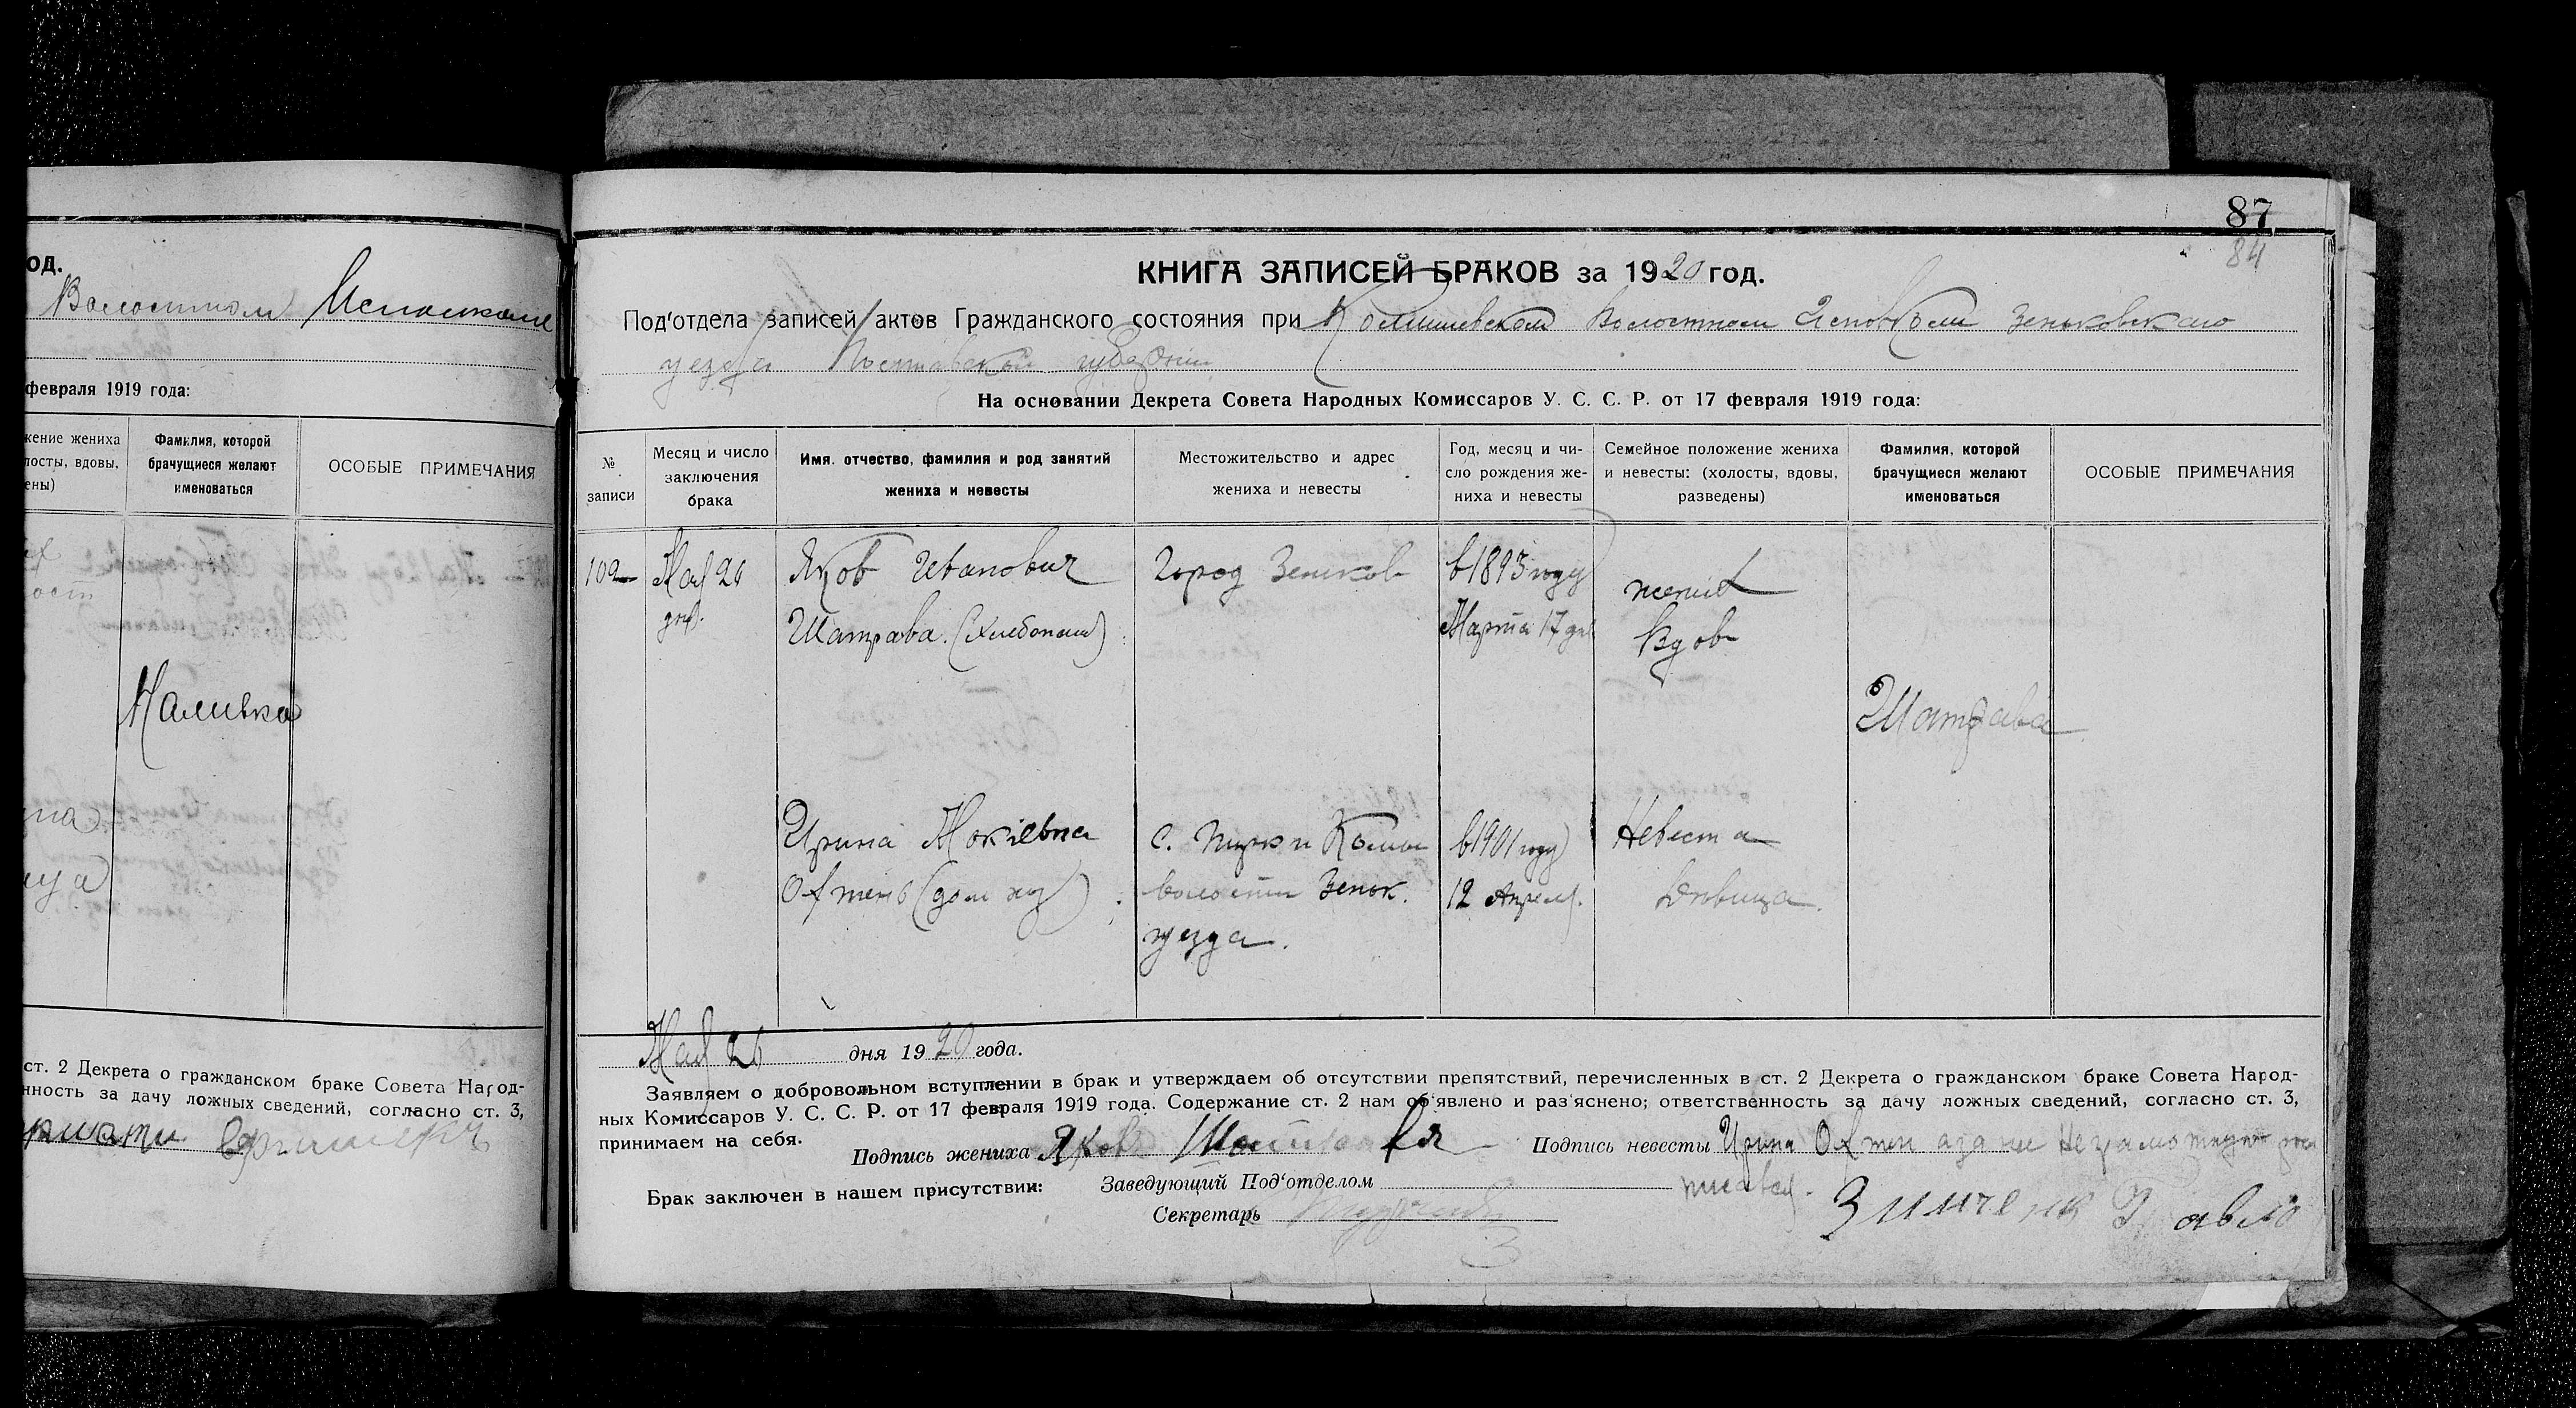 од.
Волостном Исполкоме
февраля 1919 года:
жение жениха
лосты, вдовы,
ены)
Фамилия, которой
брачущиеся желают
именоваться
ОСОБЫЕ ПРИМЕЧАНИЯ
Маливка
ст. 2 Декрета о гражданском браке Совета Народ-
нность за дачу ложных сведений, согласно ст. 3,
87
84
КНИГА ЗАПИСЕЙ БРАКОВ за 1920 год.
Под'отдела записей актов Гражданского состояния при Комышевском Волостном Исповкоми Зеньковскаго
уезда Полтавской губернии
На основании Декрета Совета Народных Комиссаров У. С. С. Р. от 17 февраля 1919 года:
№
записи
Месяц и число
заключения
брака
Имя, отчество, фамилия и род занятий
жениха и невесты
Местожительство и адрес
жениха и невесты
Год, месяц и чи-
сло рождения же-
ниха и невесты
Семейное положение жениха
и невесты: (холосты, вдовы,
разведены)
Фамилия, которой
брачущиеся желают
именоваться
ОСОБЫЕ ПРИМЕЧАНИЯ
102
Мая 26
дня.
Яков Иванович
Шатрава. (Хлебопаш)
Город Зеньков
в 1893 году
Марта 17 дня
жених
Вдов
Шатрава
Ирина Мокіевна
Охтень (дом хоз)
с. Пирки Комыш
волости Зеньк.
уезда.
в 1901 году
12 Апреля.
Невеста
Девица.
Мая 26 дня 1920 года.
Заявляем о добровольном вступлении в брак и утверждаем об отсутствии препятствий, перечисленных в ст. 2 Декрета о гражданском браке Совета Народ-
ных Комиссаров У. С. С. Р. от 17 февраля 1919 года. Содержание ст. 2 нам об'явлено и раз'яснено; ответственность за дачу ложных сведений, согласно ст. 3,
принимаем на себя.
Подпись жениха Яков Шатрава Подпись невесты Ирина Охтень а за ие Неграмотную рос
писався.
Брак заключен в нашем присутствии: Заведующий Под'отделом
Зинченк Павло
Секретарь